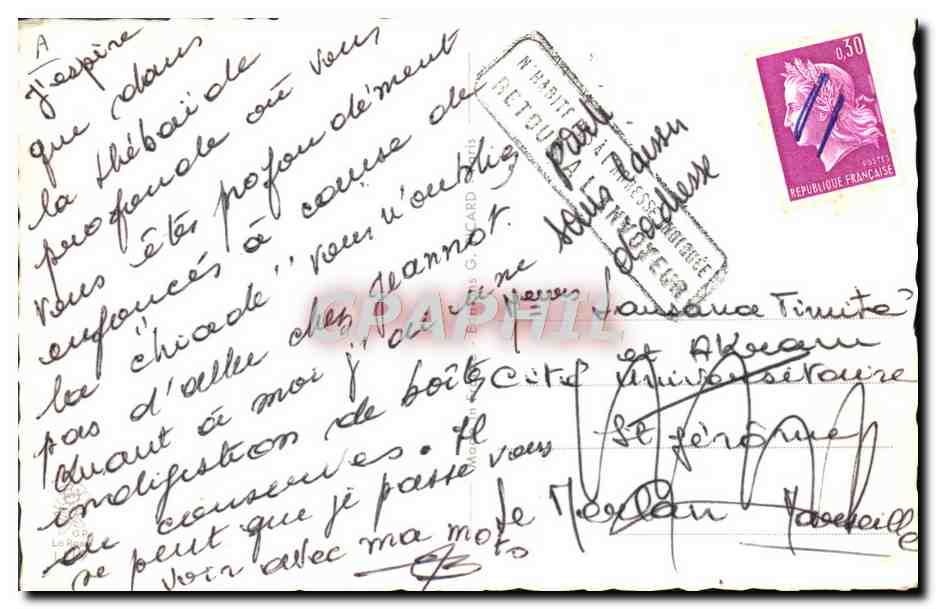 A
J'espère
que dans
la thébaïde
profonde où vous
vous êtes profondément
enfoncés à cause de
la "chiade" vous n'oubliez
pas d'aller chez Jeannot.
Quant à moi j'ai une
indigestion de boîtes
de conserves. Il
se peut que je passe vous
voir avec ma moto
0,30
POSTES
REPUBLIQUE FRANÇAISE
N'HABITE PAS A L'ADRESSE INDIQUÉE
RETOUR A L'ENVOYEUR
parti
sans laisser
d'adresse
Sansana Timité
et Akram
Cité Universitaire
St Jérôme
Le Merlan Marseille
CPAPHIL